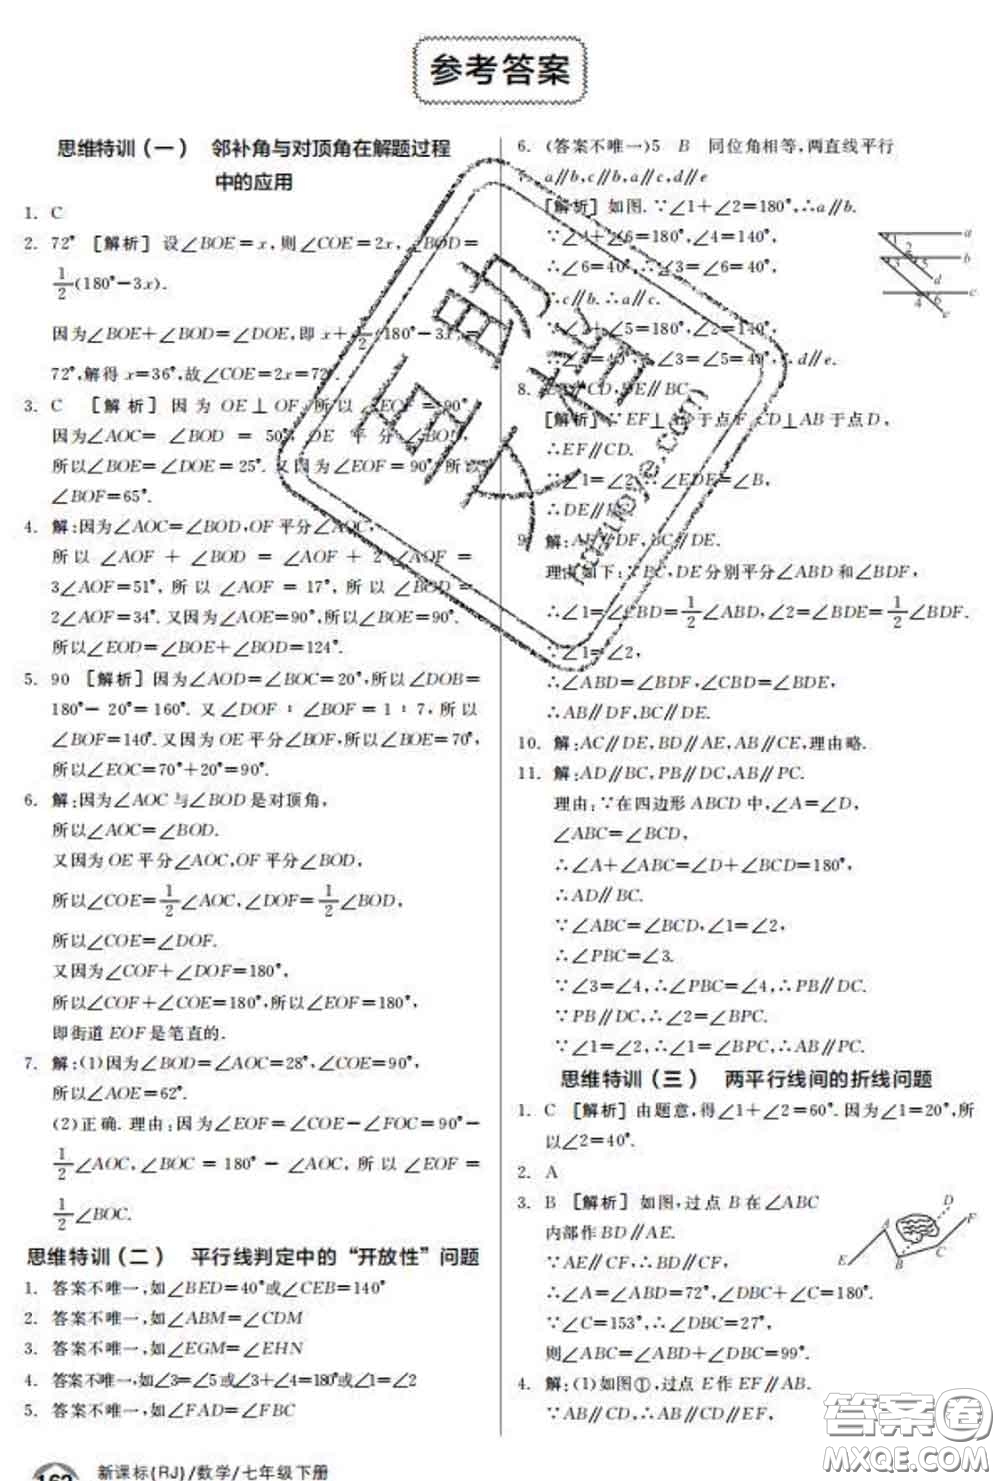 参考答案
思维特训(一) 邻补角与对顶角在解题过程
中的应用
1. C
2. 72° [解析] 设∠BOE=x,则∠COE=2x,∠BOD=
1/2(180°-3x).
因为∠BOE+∠BOD=∠DOE,即x+1/2(180°-3x)=
72°,解得x=36°,故∠COE=2x=72°.
3. C [解析] 因为OE⊥OF,所以∠EOF=90°
因为∠AOC=∠BOD=50°,OE平分∠BOD,
所以∠BOE=∠DOE=25°.又因为∠EOF=90°,所以
∠BOF=65°.
4. 解:因为∠AOC=∠BOD,OF平分∠AOC,
所以∠AOF+∠BOD=∠AOF+2∠AOF=
3∠AOF=51°,所以∠AOF=17°,所以∠BOD=
2∠AOF=34°.又因为∠AOE=90°,所以∠BOE=90°.
所以∠EOD=∠BOE+∠BOD=124°.
5. 90 [解析] 因为∠AOD=∠BOC=20°,所以∠DOB=
180°-20°=160°.又∠DOF∶∠BOF=1∶7,所以
∠BOF=140°.又因为OE平分∠BOF,所以∠BOE=70°,
所以∠EOC=70°+20°=90°.
6. 解:因为∠AOC与∠BOD是对顶角,
所以∠AOC=∠BOD.
又因为OE平分∠AOC,OF平分∠BOD,
所以∠COE=1/2∠AOC,∠DOF=1/2∠BOD,
所以∠COE=∠DOF.
又因为∠COF+∠DOF=180°,
所以∠COF+∠COE=180°,所以∠EOF=180°,
即街道EOF是笔直的.
7. 解:(1)因为∠BOD=∠AOC=28°,∠COE=90°,
所以∠AOE=62°.
(2)正确.理由:∠EOF=∠COE-∠FOC=90°-
1/2∠AOC,∠BOC=180°-∠AOC,所以∠EOF=
1/2∠BOC.
思维特训(二) 平行线判定中的“开放性”问题
1. 答案不唯一,如∠BED=40°或∠CEB=140°
2. 答案不唯一,如∠ABM=∠CDM
3. 答案不唯一,如∠EGM=∠EHN
4. 答案不唯一,如∠3=∠5或∠3+∠4=180°或∠1=∠2
5. 答案不唯一,如∠FAD=∠FBC
162 新课标(RJ)/数学/七年级下册
6. (答案不唯一)5 B 同位角相等,两直线平行
7. a∥b,c∥b,a∥c,d∥e
[解析] 如图.∵∠1+∠2=180°,∴a∥b.
∵∠4+∠6=180°,∠4=140°,
∴∠6=40°,∴∠3=∠6=40°,
∴c∥b.∴a∥c.
∵∠2+∠5=180°,∠2=140°,
∴∠5=40°,∴∠3=∠5=40°,∴d∥e.
8. EF∥CD,DE∥BC
[解析] ∵EF⊥AB于点F,CD⊥AB于点D,
∴EF∥CD.
∵∠1=∠2,∴∠EDF=∠B,
∴DE∥BC.
9. 解:AB∥DF,BC∥DE.
理由如下:∵BC,DE分别平分∠ABD和∠BDF,
∴∠1=∠CBD=1/2∠ABD,∠2=∠BDE=1/2∠BDF.
∵∠1=∠2,
∴∠ABD=∠BDF,∠CBD=∠BDE,
∴AB∥DF,BC∥DE.
10. 解:AC∥DE,BD∥AE,AB∥CE,理由略.
11. 解:AD∥BC,PB∥DC,AB∥PC.
理由:∵在四边形ABCD中,∠A=∠D,
∠ABC=∠BCD,
∴∠A+∠ABC=∠D+∠BCD=180°,
∴AD∥BC.
∵∠ABC=∠BCD,∠1=∠2,
∴∠PBC=∠3.
∵∠3=∠4,∴∠PBC=∠4,∴PB∥DC.
∵PB∥DC,∴∠2=∠BPC.
∵∠1=∠2,∴∠1=∠BPC,∴AB∥PC.
思维特训(三) 两平行线间的折线问题
1. C [解析] 由题意,得∠1+∠2=60°.因为∠1=20°,所
以∠2=40°.
2. A
3. B [解析] 如图,过点B在∠ABC
内部作BD∥AE.
∵AE∥CF,∴BD∥CF,
∴∠A=∠ABD=72°,∠DBC+∠C=180°.
∵∠C=153°,∴∠DBC=27°,
则∠ABC=∠ABD+∠DBC=99°.
4. 解:(1)如图①,过点E作EF∥AB.
∵AB∥CD,∴AB∥CD∥EF,
答案圈
MXQE.COM